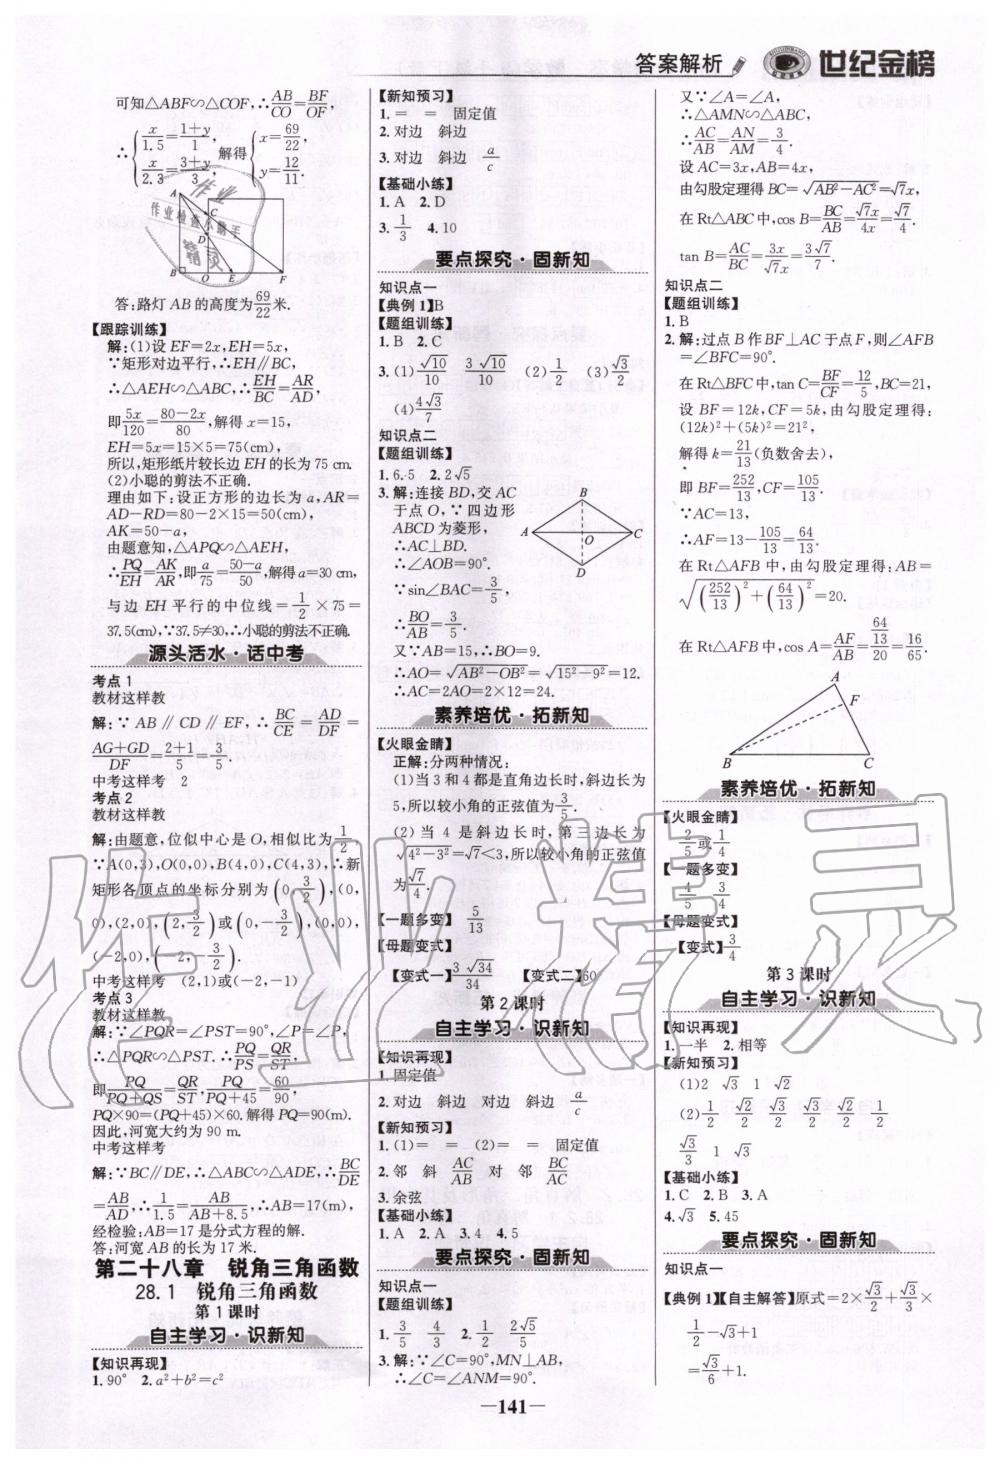 答案解析 世纪金榜
可知△ABF∽△COF,∴AB/CO=BF/OF,
∴{x/1.5=(1+y)/1, x/2.3=(3+y)/3, 解得{x=69/22, y=12/11.
A C D B O E F
答:路灯 AB 的高度为69/22米.
【跟踪训练】
解:(1)设 EF=2x,EH=5x,
∵矩形对边平行,∴EH∥BC,
∴△AEH∽△ABC,∴EH/BC=AR/AD,
即5x/120=(80-2x)/80,解得 x=15,
EH=5x=15×5=75(cm),
所以,矩形纸片较长边 EH 的长为 75 cm.
(2)小聪的剪法不正确.
理由如下:设正方形的边长为 a,AR=
AD-RD=80-2×15=50(cm),
AK=50-a,
由题意知,△APQ∽△AEH,
∴PQ/EH=AK/AR,即a/75=(50-a)/50,解得 a=30 cm,
与边 EH 平行的中位线=1/2×75=
37.5(cm),∵37.5≠30,∴小聪的剪法不正确.
源头活水·话中考
考点 1
教材这样教
解:∵AB∥CD∥EF,∴BC/CE=AD/DF=
(AG+GD)/DF=(2+1)/5=3/5.
中考这样考 2
考点 2
教材这样教
解:由题意,位似中心是 O,相似比为1/2
∵A(0,3),O(0,0),B(4,0),C(4,3),∴新
矩形各顶点的坐标分别为(0,3/2),(0,
0),(2,0),(2,3/2)或(0,-3/2),(0,0),
(-2,0),(-2,-3/2).
中考这样考 (2,1)或(-2,-1)
考点 3
教材这样教
解:∵∠PQR=∠PST=90°,∠P=∠P,
∴△PQR∽△PST.∴PQ/PS=QR/ST,
即PQ/(PQ+QS)=QR/ST,PQ/(PQ+45)=60/90,
PQ×90=(PQ+45)×60.解得 PQ=90(m).
因此,河宽大约为 90 m.
中考这样考
解:∵BC∥DE,∴△ABC∽△ADE,∴BC/DE
=AB/AD,∴1/1.5=AB/(AB+8.5),∴AB=17(m).
经检验:AB=17 是分式方程的解.
答:河宽 AB 的长为 17 米.
第二十八章 锐角三角函数
28.1 锐角三角函数
第 1 课时
自主学习·识新知
【知识再现】
1.90° 2.a²+b²=c²
【新知预习】
1.= = 固定值
2.对边 斜边
3.对边 斜边 a/c
【基础小练】
1.A 2.D
3.1/3 4.10
要点探究·固新知
知识点一
【典例 1】B
【题组训练】
1.B 2.C
3.(1)√10/10 3√10/10 (2)1/2 (3)√3/2
(4)4√3/7
知识点二
【题组训练】
1.6.5 2.2√5
3.解:连接 BD,交 AC
于点 O,∵四边形
ABCD 为菱形,
∴AC⊥BD.
∴∠AOB=90°.
∵sin∠BAC=3/5,
∴BO/AB=3/5.
A B C D O
又∵AB=15,∴BO=9.
∴AO=√(AB²-OB²)=√(15²-9²)=12.
∴AC=2AO=2×12=24.
素养培优·拓新知
【火眼金睛】
正解:分两种情况:
(1)当 3 和 4 都是直角边长时,斜边长为
5,所以较小角的正弦值为3/5.
(2)当 4 是斜边长时,第三边长为
√(4²-3²)=√7<3,所以较小角的正弦值
为√7/4.
【一题多变】 5/13
【母题变式】
【变式一】3√34/34 【变式二】60
第 2 课时
自主学习·识新知
【知识再现】
1.固定值
2.对边 斜边 对边 斜边 a/c
【新知预习】
1.(1)= = (2)= = 固定值
2.邻 斜 AC/AB 对 邻 BC/AC
3.余弦
【基础小练】
1.A 2.A 3.4 4.5
要点探究·固新知
知识点一
【题组训练】
1.3/5 4/3 2.1/2 2√5/5
3.解:∵∠C=90°,MN⊥AB,
∴∠C=∠ANM=90°.
又∵∠A=∠A,
∴△AMN∽△ABC,
∴AC/AB=AN/AM=3/4.
设 AC=3x,AB=4x,
由勾股定理得 BC=√(AB²-AC²)=√7x,
在 Rt△ABC 中,cos B=BC/AB=√7x/4x=√7/4,
tan B=AC/BC=3x/√7x=3√7/7.
知识点二
【题组训练】
1.B
2.解:过点 B 作 BF⊥AC 于点 F,则∠AFB
=∠BFC=90°.
在 Rt△BFC 中,tan C=BF/CF=12/5,BC=21,
设 BF=12k,CF=5k,由勾股定理得:
(12k)²+(5k)²=21²,
解得 k=21/13(负数舍去),
即 BF=252/13,CF=105/13.
∵AC=13,
∴AF=13-105/13=64/13.
在 Rt△AFB 中,由勾股定理得:AB=
√((252/13)²+(64/13)²)=20.
在 Rt△AFB 中,cos A=AF/AB=(64/13)/20=16/65.
A F B C
素养培优·拓新知
【火眼金睛】
2/5或1/4
【一题多变】
4/5 3/4
【母题变式】
【变式】3/4
第 3 课时
自主学习·识新知
【知识再现】
1.一半 2.相等
【新知预习】
(1)2 √3 1 √2
(2)1/2 √2/2 √3/2 √3/2 √2/2 1/2
√3/3 1 √3
【基础小练】
1.C 2.B 3.A
4.√3 5.45
要点探究·固新知
知识点一
【典例 1】【自主解答】原式=2×√3/2+√3/3×
1/2-√3+1
=√3/6+1.
—141—
作业精灵
作业检查小助手